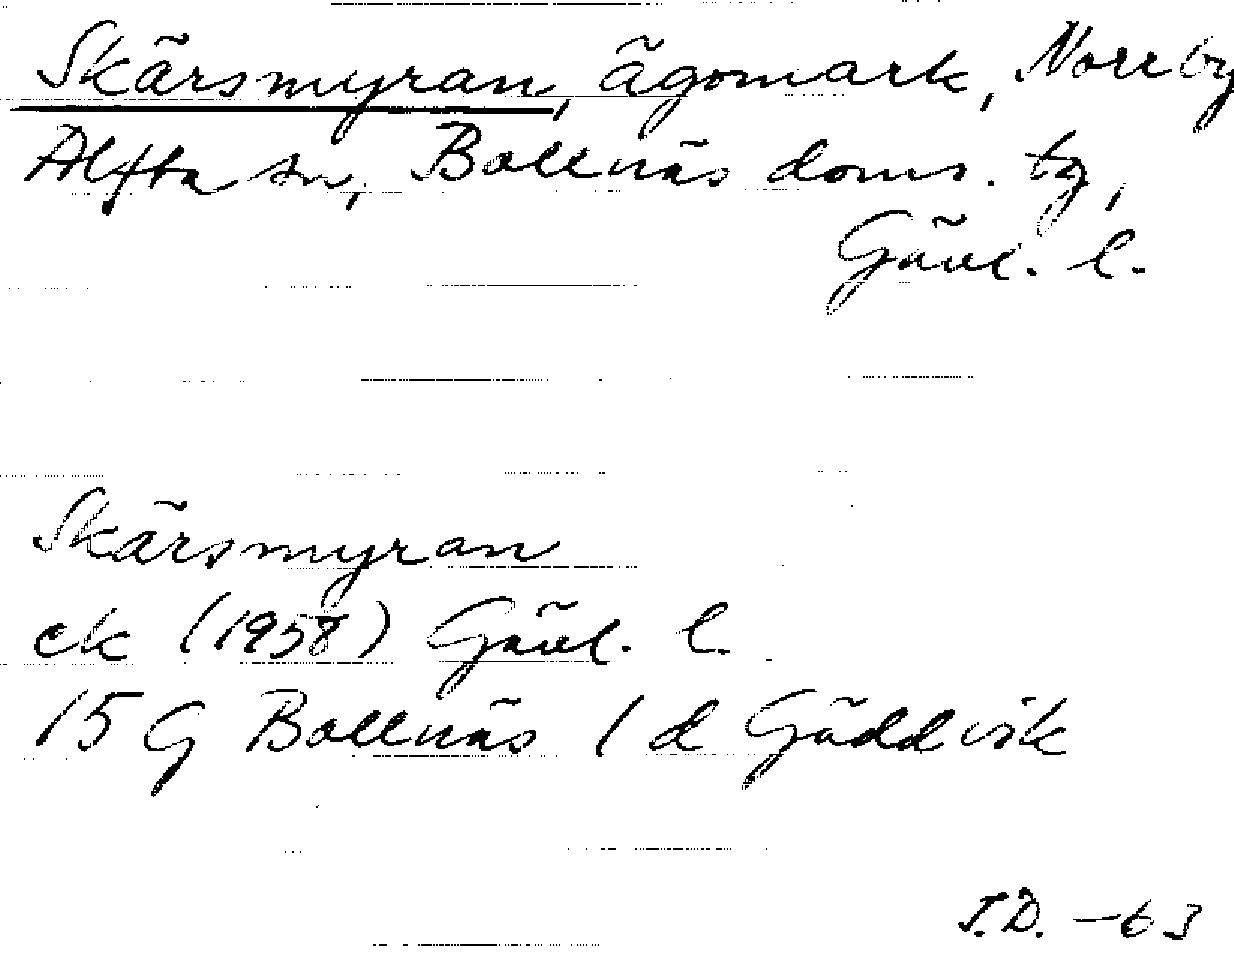 Skärsmyran, ägomark, Norrby
Alfta sn, Bollnäs doms. tg,
Gävl. l.
Skärsmyran
ek (1958) Gävl. l.
15 G Bollnäs 1 d Gäddvik
I.D. -63